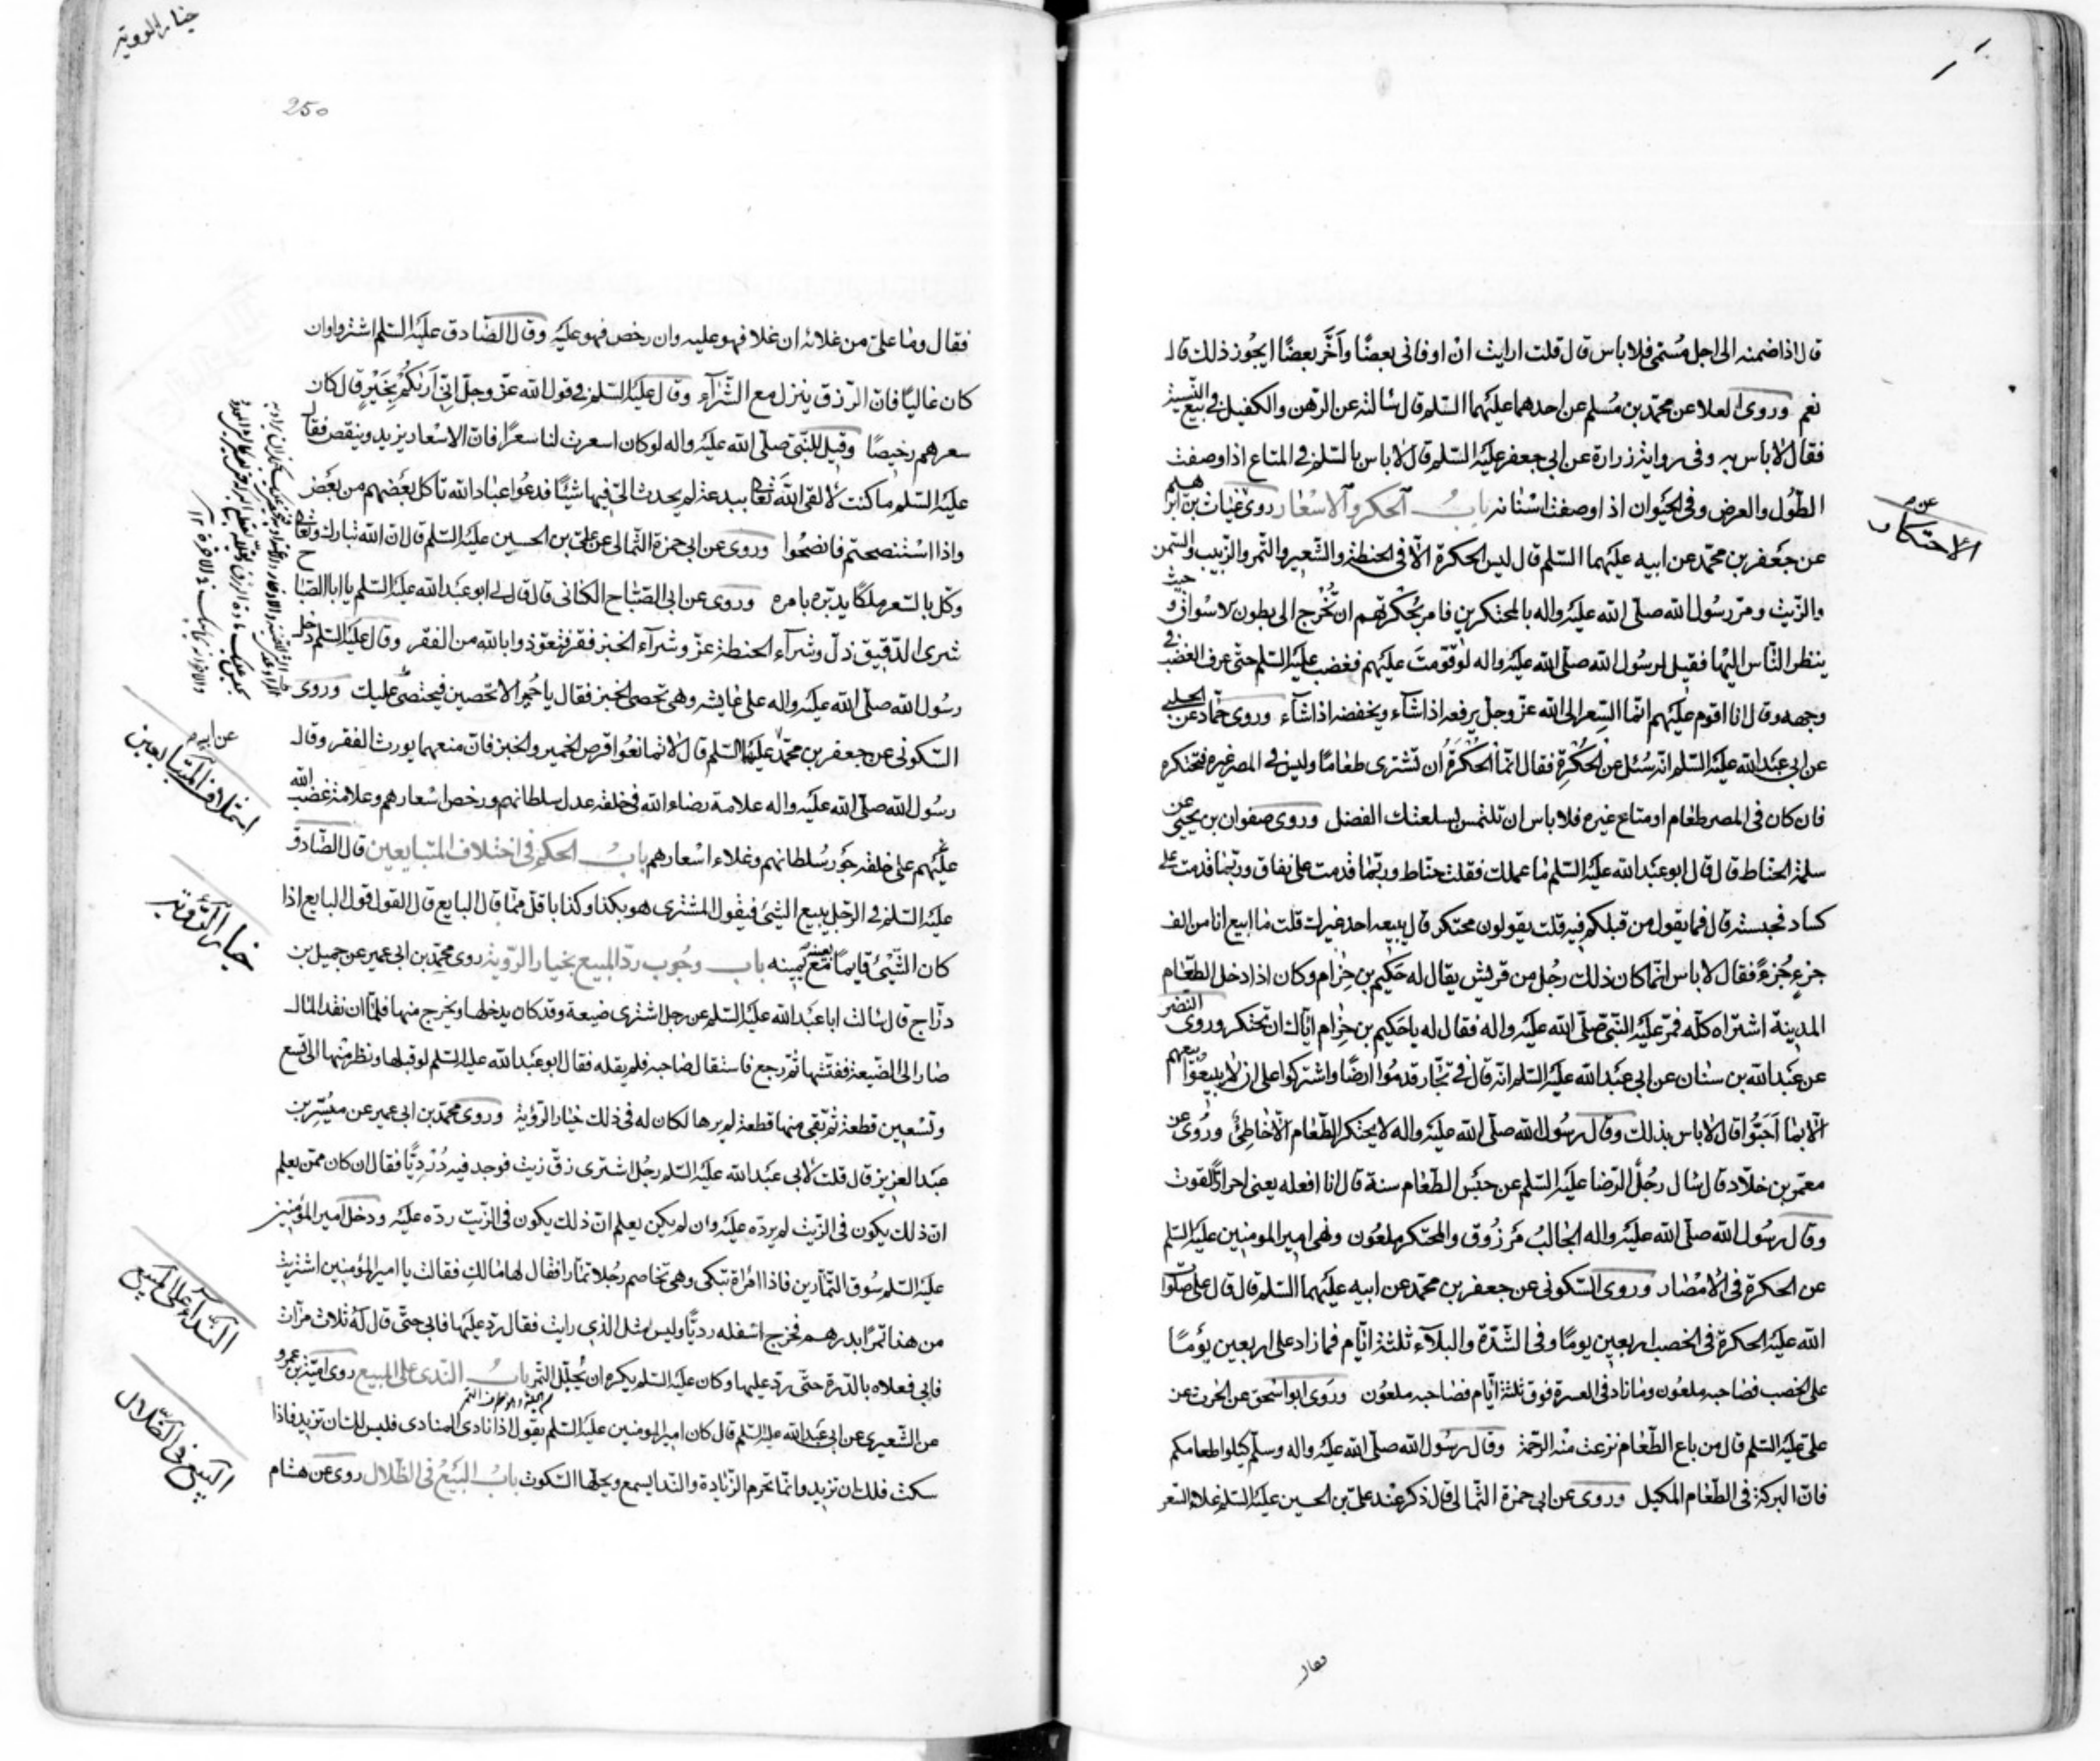 قال اذا ضمنه الى اجل مسمى فلا باس قال قلت ارايت ان اوفانى بعضًا واَخَّر بعضًا ايجوز ذلك قال
نعم وروى العلا عن محمد بن مُسلم عن احدهما عليهما السّلم قال سالته عن الرّهن والكفيل فى بيع النّسية
فقال لا باس به وفى رواية زرارة عن ابى جعفر عليه السّلم قال لا باس بالسّلم فى المتاع اذا وصفت
الطّول والعرض وفى الحيَوان اذا وصفت اسنانه بابُ الحكر والاسعار روى غياث بن ابرهيم
عن جعفر بن محمّد عن ابيه عليهما السّلم قال ليس الحكرة الّا فى الحنطة والشّعير والتّمر والزّبيب والسّمن
والزّيت ومرّ رسُول الله صلّى الله عليه واله بالمحتكرين فامر بحُكرتهم ان تُخْرج الى بطون الاسواق وحيث
ينظر النّاس اليها فقيل لرسُول الله صلّى الله عليه واله لو قوّمتَ عليهم فغضب عليه السّلم حتّى عرف الغضب فى
وجهه وقال انا اقوم عليهم انّما السِّعر الى الله عزّ وجلّ يرفعه اذا شآء ويخفضه اذا شآء وروى حمّاد عن الحلبى
عن ابى عبد الله عليه السّلم انّه سُئل عن الحُكرة فقال انّما الحُكْرَةُ ان تشترى طعامًا وليس فى المصر غيره فتحتكره
فان كان فى المصر طعام او متاع غيره فلا باس ان تلتمس بسلعتك الفضل وروى صفوان بن يحيى عن
سلمة الحنّاط قال قال ابو عبد الله عليه السّلم ما عملك فقلت حنّاط وربّما قدمت على نفاق وربّما قدمت على
كساد فحبسته قال فما يقول من قبلكم فيه قلت يقولون محتكر قال يبيعه احد غيرك قلت ما ابيع انا من الف
جزءٍ جُزءً فقال لا باس انّما كان ذلك رجُل من قريش يقال له حَكيم بن حِزام وكان اذا دخل الطّعام
المدينة اشتراه كلّه فمرّ عليه النّبىّ صلّى الله عليه واله فقال له يا حَكيم بن حِزام ايّاك ان تحتكر وروى النّضر
عن عبد الله بن سنان عن ابى عبد الله عليه السّلم انّه قال فى تجّار قدمُوا ارضًا واشتركوا على ان لا يبيعُوا بيعهم
الّا بما اَحَبّوا قال لا باس بذلك وقال رسُول الله صلّى الله عليه واله لا يحتكر الطّعام الّا خاطئ وروى عن
معمّر بن خلّاد قال سال رجُلٌ الرّضا عليه السّلم عن حبْس الطّعام سنة قال انا افعله يعنى احراز القوت
وقال رسُول الله صلّى الله عليه واله الجالبُ مَرزُوق والمحتكر ملعُون ونهى امير المومنين عليه السّلم
عن الحكرة فى الامصار وروى السّكونى عن جعفر بن محمّد عن ابيه عليهما السّلم قال قال علىّ صلوات
الله عليه الحكرة فى الخصب اربعين يومًا وفى الشّدّة والبلآء ثلثة ايّام فما زاد على اربعين يومًا
على الخصب فصاحبه ملعُون وما زاد فى العسرة فوق ثلثة ايّام فصاحبه ملعُون وروى ابو اسحق عن الحرث عن
علىّ عليه السّلم قال من باع الطّعام نزعت منْه الرّحمة وقال رسُول الله صلّى الله عليه واله وسلّم كيلوا طعامكم
فانّ البركة فى الطّعام المكيل وروى عن ابى حمزة الثّمالى قال ذكر عند علىّ بن الحسين عليه السّلم غلاء السّعر
الاحتكار
فقال
خيار الرؤية
250
فقال وما علىّ من غلائه ان غلا فهو عليه وان رخص فهو عليه وقال الصّادق عليه السّلم اشتروا وان
كان غاليًا فانّ الرّزق ينزل مع الشّرآء وقال عليه السّلم فى قول الله عزّ وجلّ انّى اَريٰكُمْ بِخَيْرٍ قال كان
سعرهم رخيصًا وقيل للنّبىّ صلّى الله عليه واله لو كان اسعرت لنا سعرًا فانّ الاسعار يزيد وينقص فقال
عليه السّلم ما كنت لالقى الله تعالى ببدعة لم يحدث الىّ فيها شيئًا فدعُوا عباد الله تاكل بعضهم من بعض
واذا استنصحتم فانصحُوا وروى عن ابى حمزة الثّمالى عن علىّ بن الحسين عليه السّلم قال انّ الله تبارك وتعالى
وكّل بالسّعر ملكًا يدبّره بامره وروى عن ابى الصّبّاح الكنانى قال قال لى ابو عبد الله عليه السّلم يا ابا الصّباح
شرى الدّقيق ذلّ وشرآء الحنطة عزّ وشرآء الخبز فقر فتعوّذوا بالله من الفقر وقال عليه السّلم دخل
رسُول الله صلّى الله عليه واله على عايشه وهى تحصى الخبز فقال يا حُميرا لا تحصين فيحصى عليك وروى
السّكونى عن جعفر بن محمّد عليهما السّلم قال لا تمانعُوا قرض الخمير والخبز فانّ منعهما يورث الفقر وقال
رسُول الله صلّى الله عليه واله علامة رضاء الله فى خلقه عدل سلطانهم ورخص اسعارهم وعلامة غضب الله
عليهم على خلقه جَور سُلطانهم وغلاء اسعارهم بابُ الحكم فى اختلاف المتبايعين قال الصّادق
عليه السّلم فى الرّجل يبيع الشّىء فيقول المشترى هو بكذا وكذا باقلّ ممّا قال البايع قال القول قول البايع اذا
كان الشّىء قايمًا بعينه مع يمينه باب وجُوب ردّ المبيع بخيار الرّوية روى محمّد بن ابى عمير عن جميل بن
درّاج قال سالت ابا عبد الله عليه السّلم عن رجل اشترى ضيعة وقد كان يدخلها ويخرج منها فلمّا ان نقد المال
صار الى الضّيعة ففتّشها ثمّ رجع فاستقال صاحبه فلم يقله فقال ابو عبد الله عليه السّلم لو قبلها ونظر منْها الى تسع
وتسْعين قطعة ثمّ بقى منها قطعة لم يرها لكان له فى ذلك خيار الرّؤية وروى محمّد بن ابى عمير عن ميُسّر بن
عبد العزيز قال قلت لابى عبد الله عليه السّلم رجُل اشترى زقّ زيت فوجد فيه دُرديًّا فقال ان كان ممّن يعلم
انّ ذلك يكون فى الزّيت لم يردّه عليه وان لم يكن يعلم انّ ذلك يكون فى الزّيت ردّه عليه ودخل امير المؤمنين
عليه السّلم سُوق التّمّارين فاذا امراة تبكى وهى تخاصم رجُلا تمّارا فقال لها مالكِ فقالت يا امير المؤمنين اشتريت
من هذا تمرًا بدرهم فخرج اسفله رديًّا وليس مثل الذى رايت فقال ردّ عليها فابى حتّى قال له ثلاث مرّات
فابى فعلاه بالدّرة حتّى ردّ عليها وكان عليه السّلم يكره ان يُجلّل التّمر بابُ النّدى على المبيع روى اميّة بن عمرو
عن الشّعيرى عن ابى عبد الله عليه السّلم قال كان امير المومنين عليه السّلم يقول اذا نادى المنادى فليس لك ان تزيد فاذا
سكت فلك ان تزيد وانّما تحرم الزّيادة والنّدا يسمع ويحلّها السّكوت بابُ البَيْعُ فى الظّلال روى عن هشام
اختلاف المتبايعين
خيار الرّؤية
النّدآء على المبيع
البيع فى الظّلال